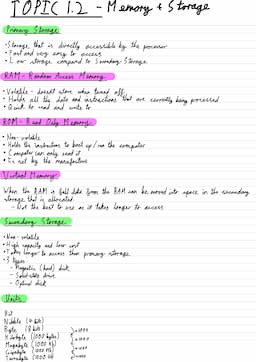 TOPIC 1.2 - Memory + Storage
Primary Storage
• Storage that is directly accessible by the processor
• Fast and very easy to access
• Low storage compared to Secondary Storage.
RAM - Random Access Memory
• Volatile - doesn't store when turned off
• Holds all the data and instructions that are currently being processed
• Quick to read and write to
ROM - Read Only Memory
• Non-volatile
• Holds the instructions to boot up / run the computer
• Computer can only read it
• Is set by the manufacturer
Virtual Memory
When the RAM is full data from the RAM can be moved into space in the secondary
storage that is allocated.
- Not the best to use as it takes longer to access
Secondary Storage
• Non-volatile
• High capacity and low cost
• Takes longer to access than primary storage
• 3 types
- Magnetic (hard) disk
- Solid state drive
- Optical disk
Units
Bit
Nibble (4 bits)
Byte (8 bits)
Kilobyte (1000 bytes)
Megabyte (1000 KB)
Gigabyte (1000 MB)
Terrabyte (1000 GB)